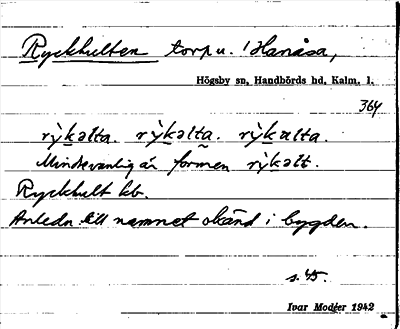 Ryckhulten torp u. Hanåsa,
Högsby sn, Handbörds hd, Kalm. l.
364
rỳkəlta. rỳkəlta. rỳkʉlta.
Mindre vanlig är formen rỳkəlt.
Ryckhult kb.
Anledn. till namnet okänd i bygden.
s. 45.
Ivar Modéer 1942